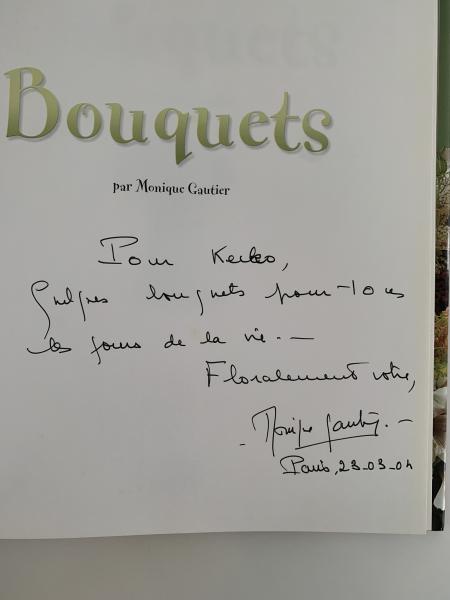 Bouquets
par Monique Gautier
Pour Keiko,
Quelques bouquets pour tous
les jours de la vie. —
Floralement vôtre,
Monique Gautier. —
Paris, 23_03_04